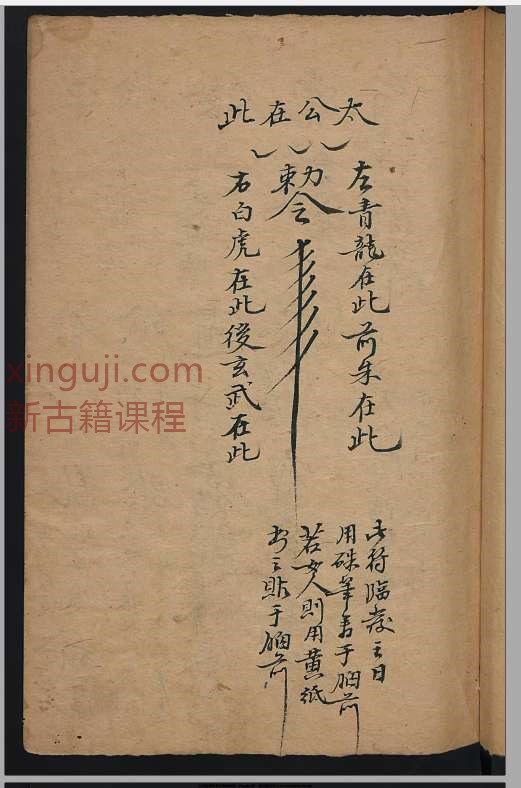 太公在此
左青龍在此前朱在此
勅令
右白虎在此後玄武在此
此符臨之日
用硃筆書于胸前
若女人則用黄紙
書之貼于胸前
xinguji.com
新古籍课程